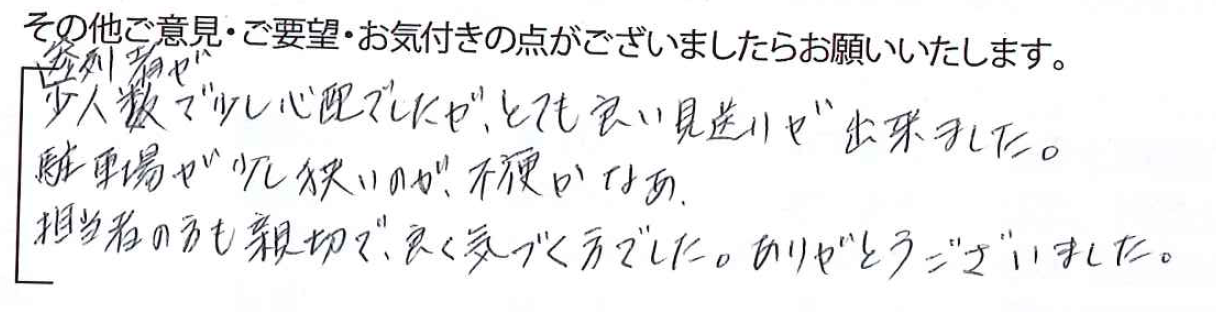 その他ご意見・ご要望・お気付きの点がございましたらお願いいたします。
参列者が
少人数で少し心配でしたが、とても良い見送りが出来ました。
駐車場が少し狭いのが、不便かなあ.
担当者の方も親切で、良く気づく方でした。ありがとうございました。